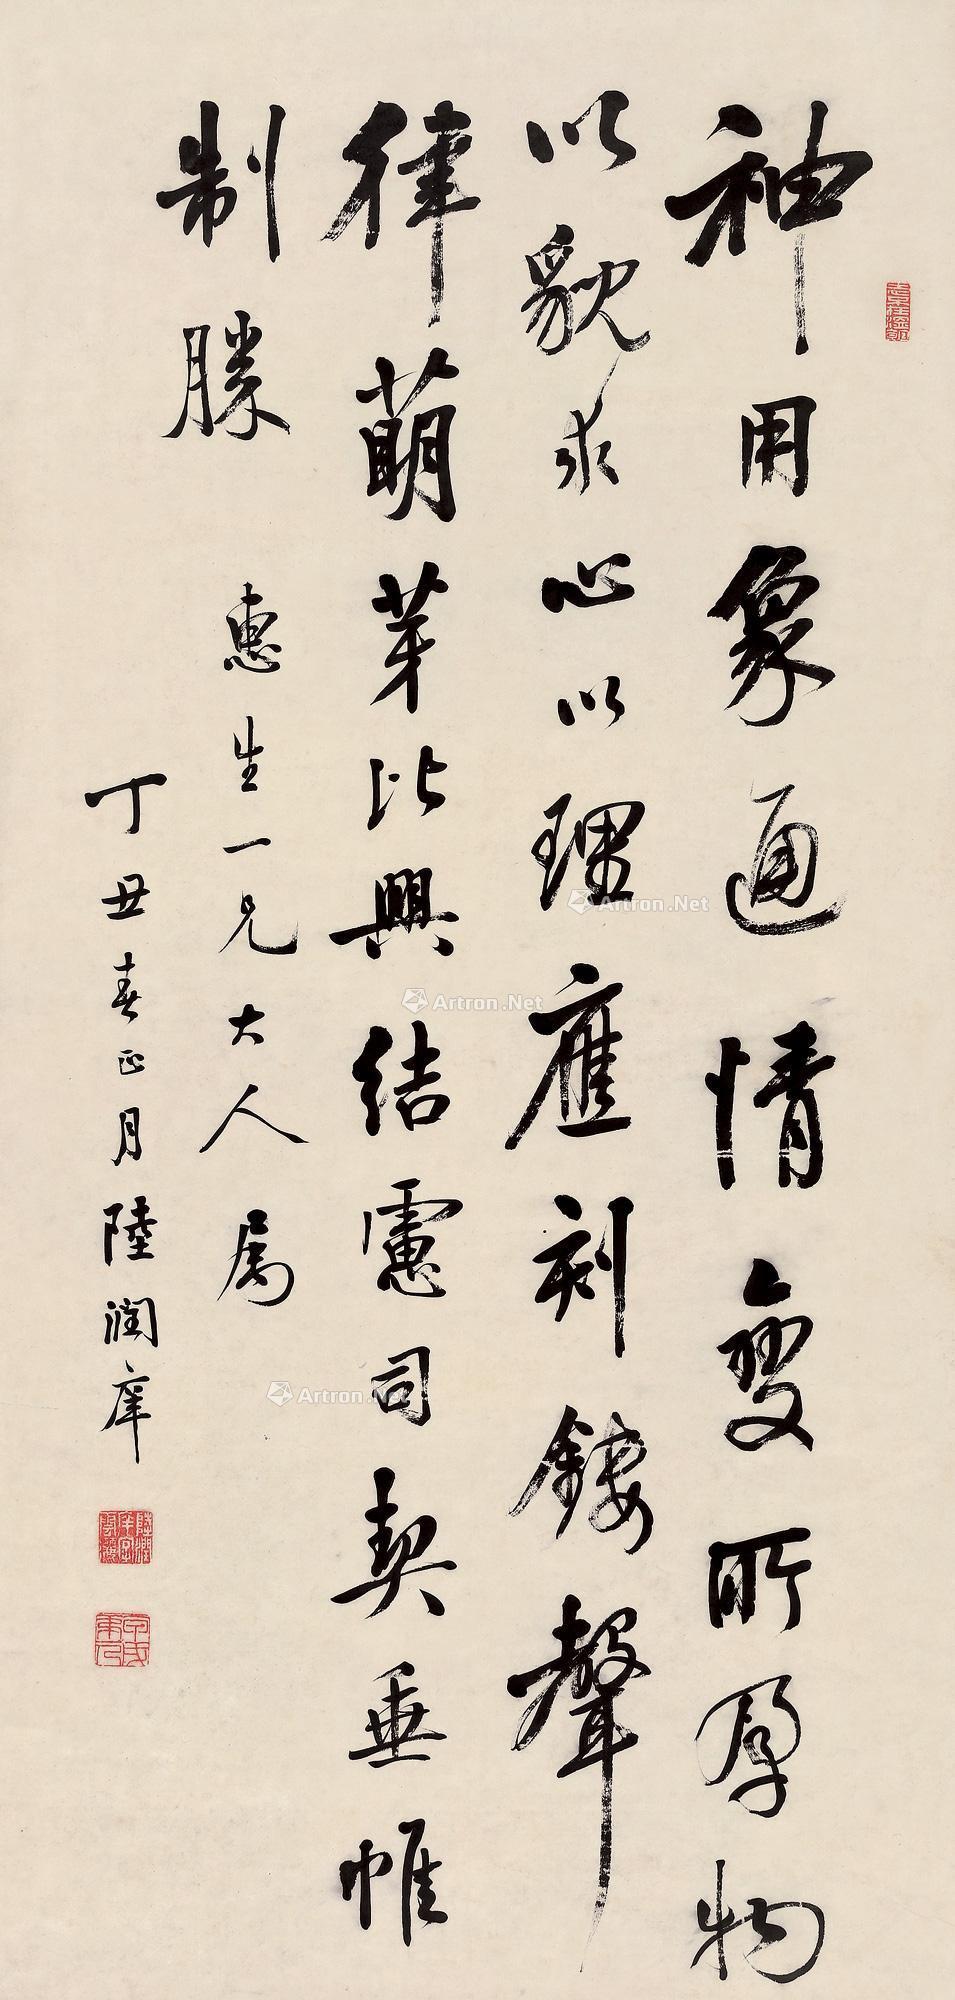 神用象通情變所孕物
以貌求心以理應刻鏤聲
律萌芽比興結慮司契垂帷
制勝
惠生一兄大人屬
丁丑春正月陸潤庠
Artron.Net
Artron.Net
Artron.Net